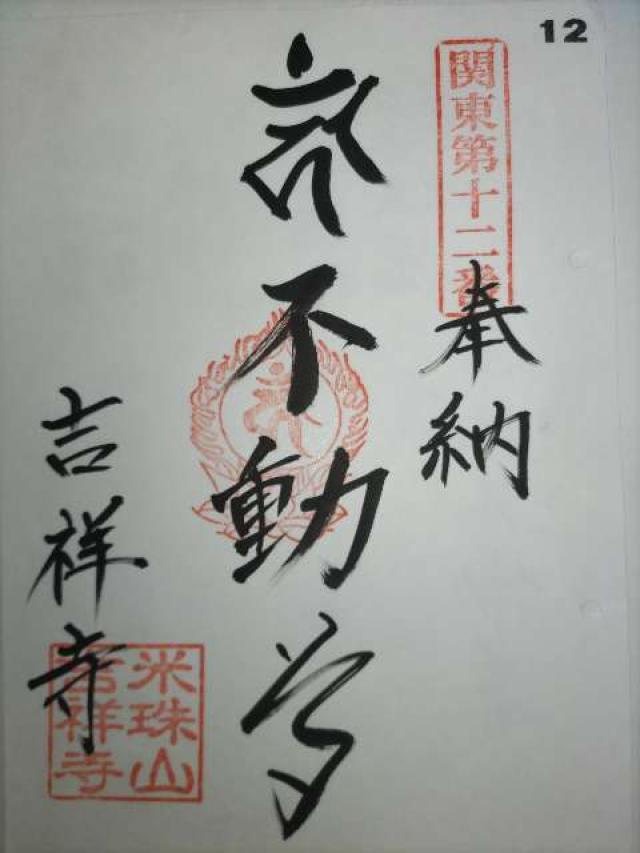 12
関東第十二番
奉納
不動
吉祥寺
米珠山
吉祥寺